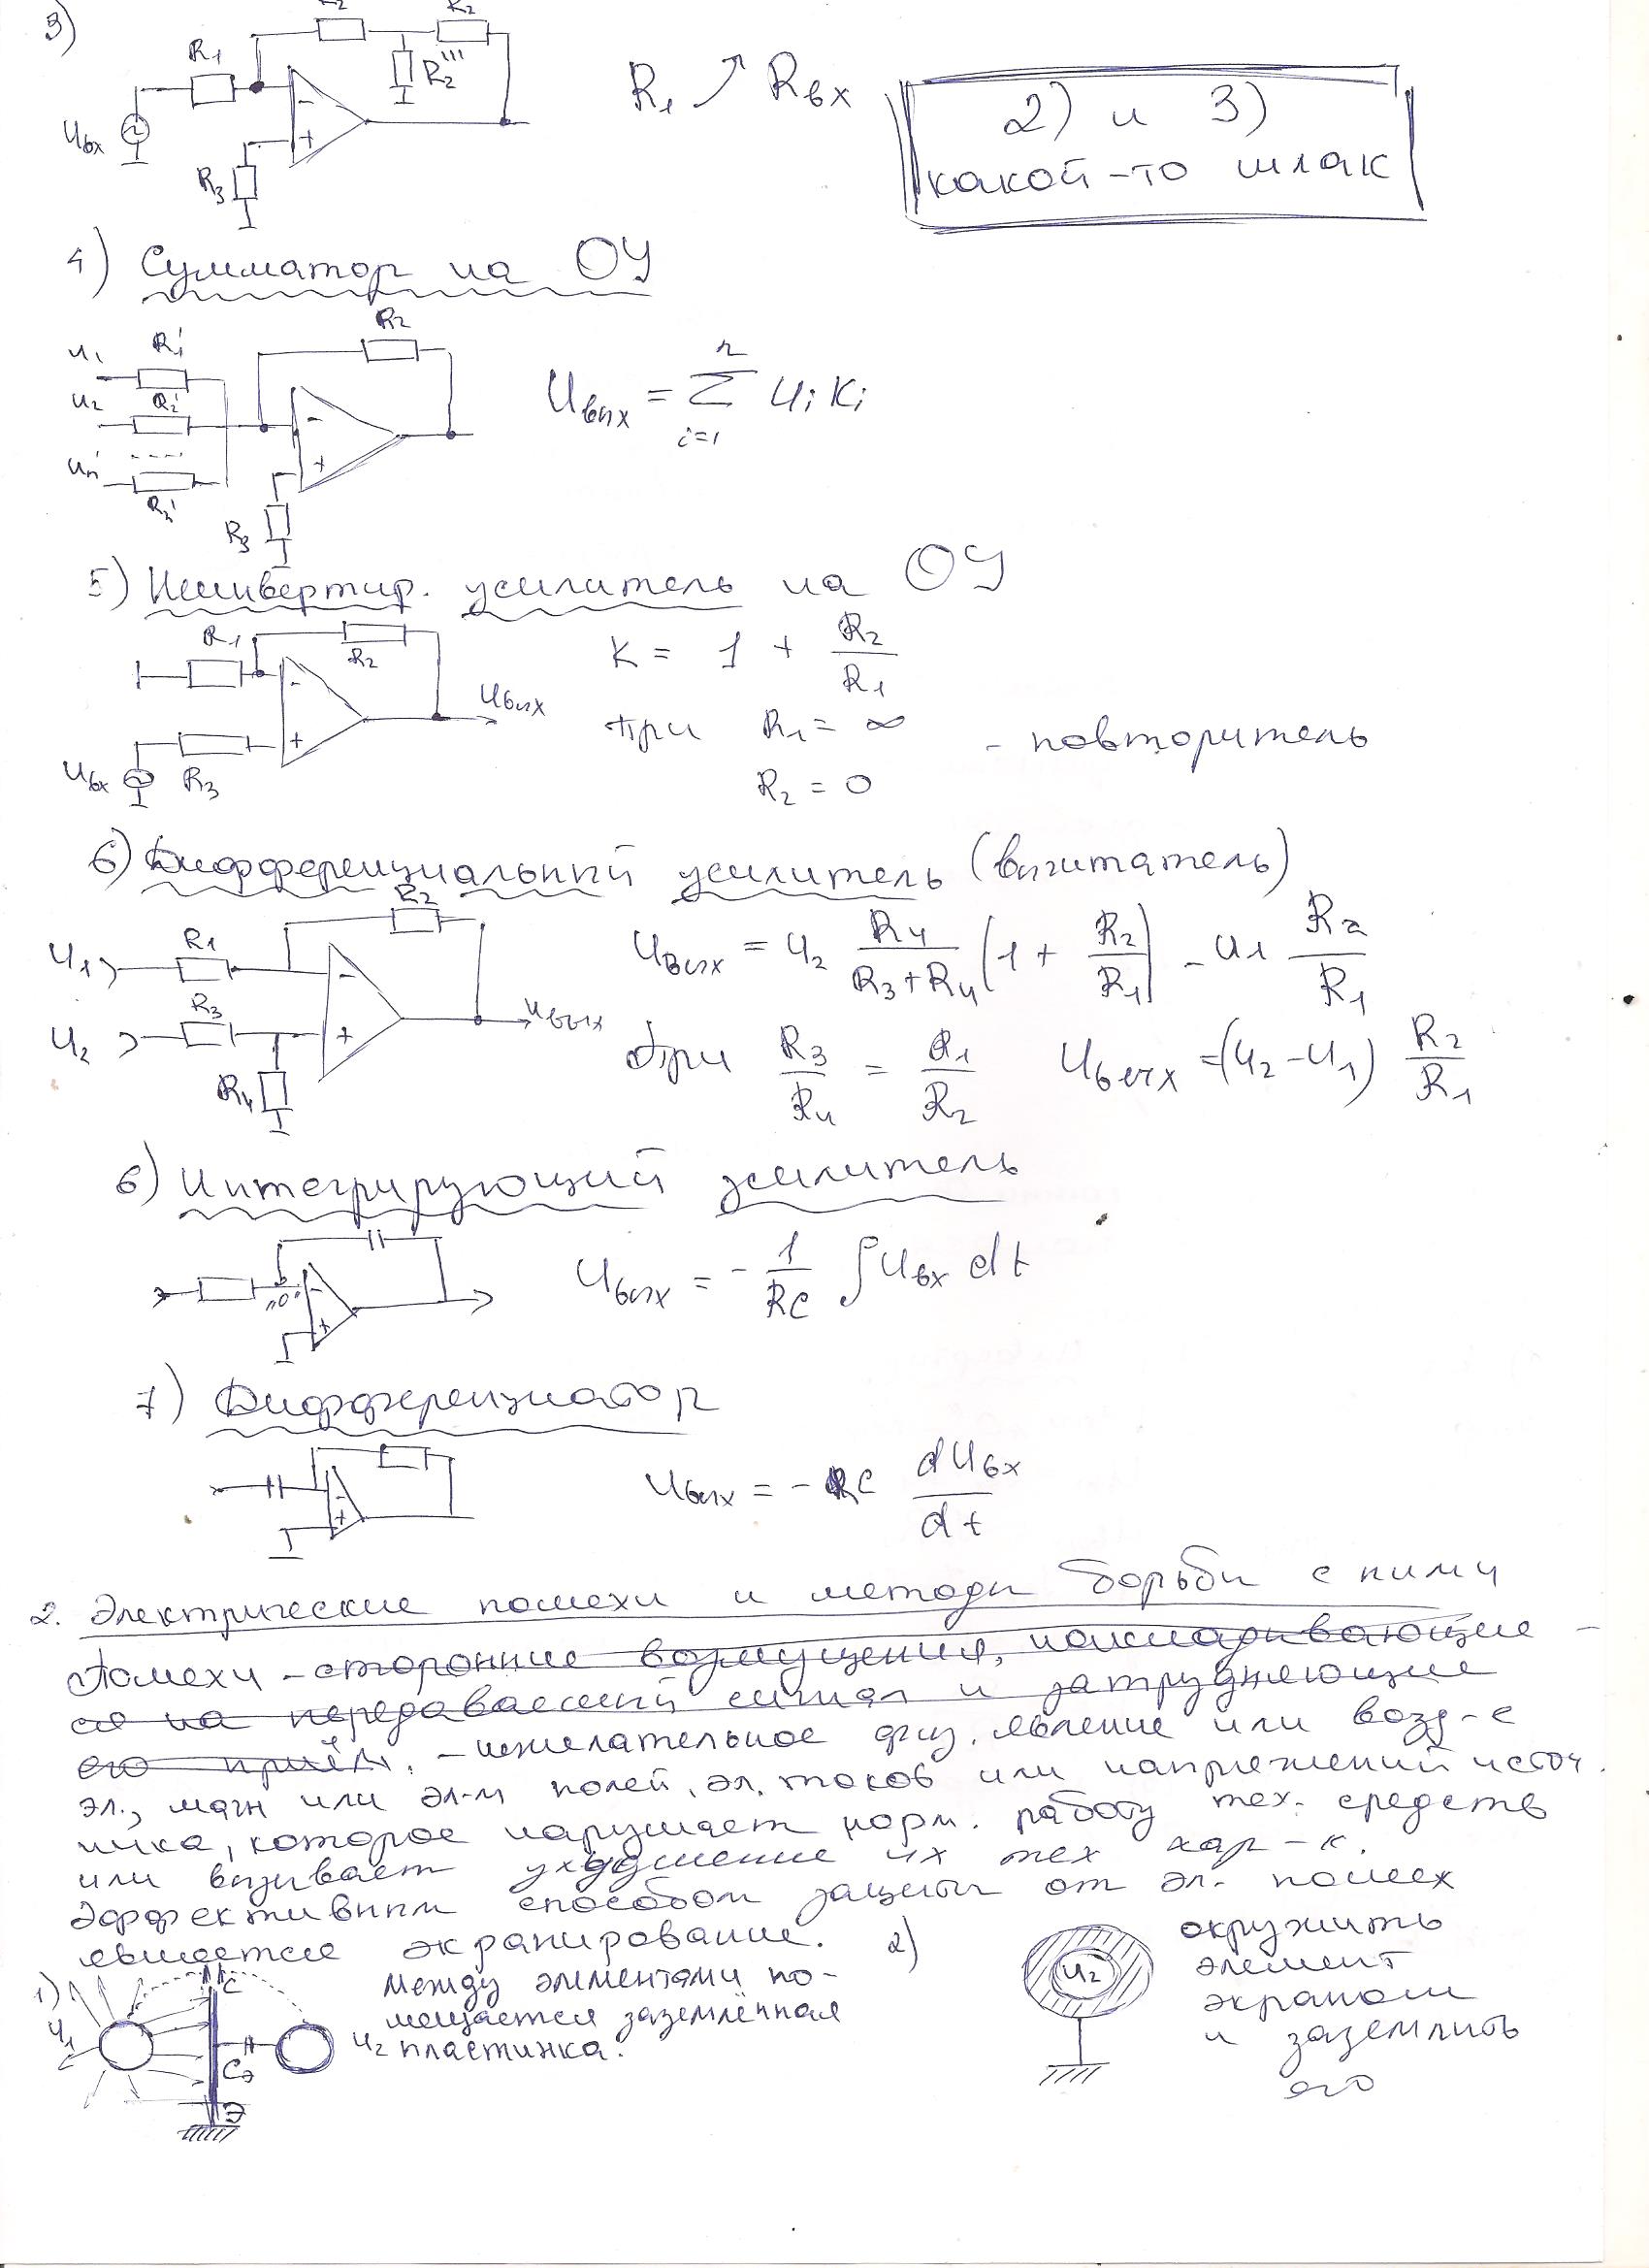 3)
R₂ R₂
R₁ R₂'''
Uвх
R₃
R₁ ↗ Rвх
2) и 3)
какой-то шлак
4) Сумматор на ОУ
U₁ R₁' R₂
U₂ R₂'
Un Rn'
R₃
Uвых = Σ Ui Ki
n
i=1
5) Неинвертир. усилитель на ОУ
R₁ R₂
Uвых
Uвх R₃
K = 1 + R₂/R₁
при R₁ = ∞
R₂ = 0
- повторитель
6) Дифференциальный усилитель (вычитатель)
U₁ R₁ R₂
U₂ R₃
R₄
Uвых
Uвых = U₂ R₄/(R₃+R₄) (1 + R₂/R₁) - U₁ R₂/R₁
При R₃/R₄ = R₁/R₂ Uвых = (U₂ - U₁) R₂/R₁
6) Интегрирующий усилитель
"0"
Uвых = - 1/RC ∫ Uвх dt
7) Дифференциатор
Uвых = - RC dUвх/dt
2. Электрические помехи и методы борьбы с ними
Помехи - сторонние возмущения, накладывающие-
ся на передаваемый сигнал и затрудняющие
его приём. - нежелательное физ. явление или возд-е
эл., магн или эл-м полей, эл. токов или напряжений источ.
ника, которое нарушает норм. работу тех. средств
или вызывает ухудшение их тех хар-к.
Эффективным способом защиты от эл. помех
является экранирование.
1) U₁ C Cэ Э U₂
между элементами по-
мещается заземлённая
пластинка.
2) U₂
окружить
элемент
экраном
и заземлить
его